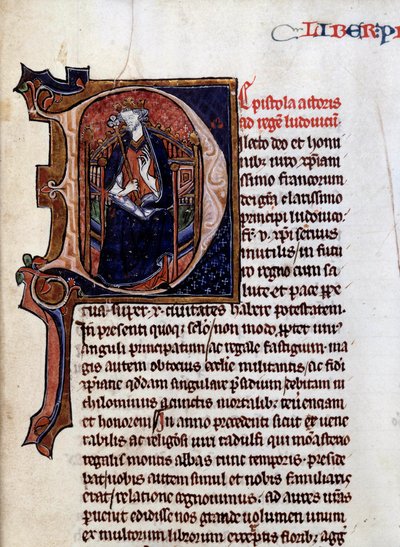 LIBER: P
Epistola actoris
ad regē ludouicū
D ilecto deo et homi
nib;
ssimo francorum
dei grā clarissimo
principi ludouico
fr̄. v. xpi seruus
inutilis in futu
ro regno cum sa
lute et pace ppe
tua super .x. ciuitates habere potestatem.
In presenti quoq; sclo non modo ppter uni
anguli principatum ac regale fastigium. ma
gis autem obtocius ecclie militantis ac fidi
xpiane qddam singulare psidium debitam ni
chilominus a cunctis mortalib; reuerenciam
et honorem. In anno precedenti sicut ex uene
rabilis ac religiosi uiri radulfi qui monasterio
regalis montis abbas tunc temporis preside
bat uobis autem simul et nobis familiaris
erat relatione cognouimus. ad aures uras
puenit edidisse nos grande uolumen unum
ex multorum librorum exceptis florib; agg